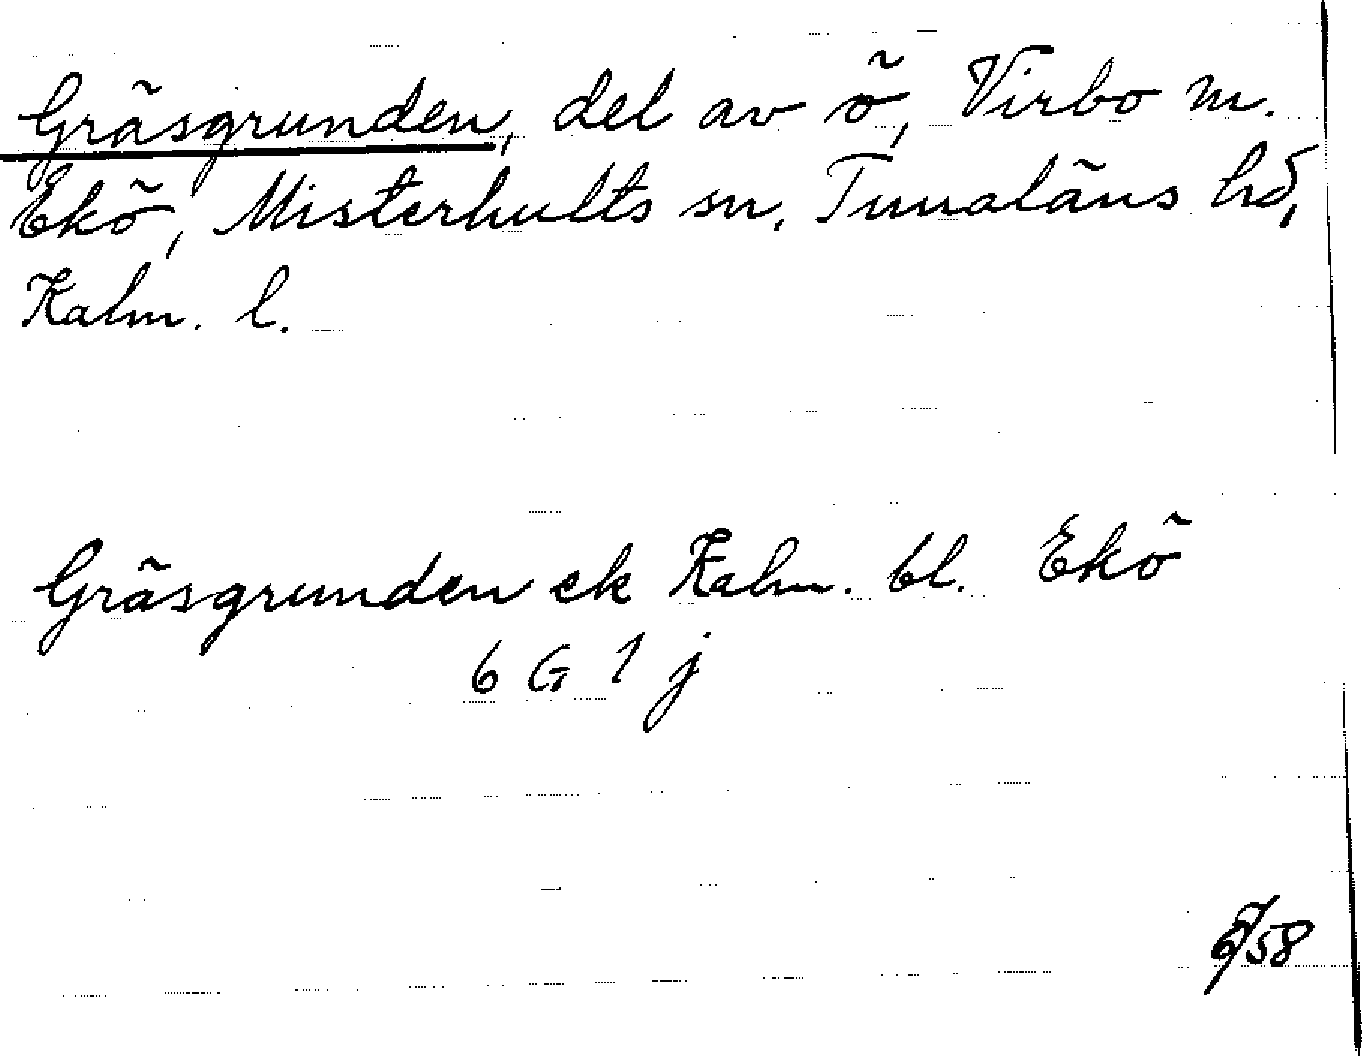 Gräsgrunden, del av ö, Virbo m.
Ekö, Misterhults sn, Tunaläns hd,
Kalm. l.
Gräsgrunden ek Kalm. bl. Ekö
6 G 1 j
/58